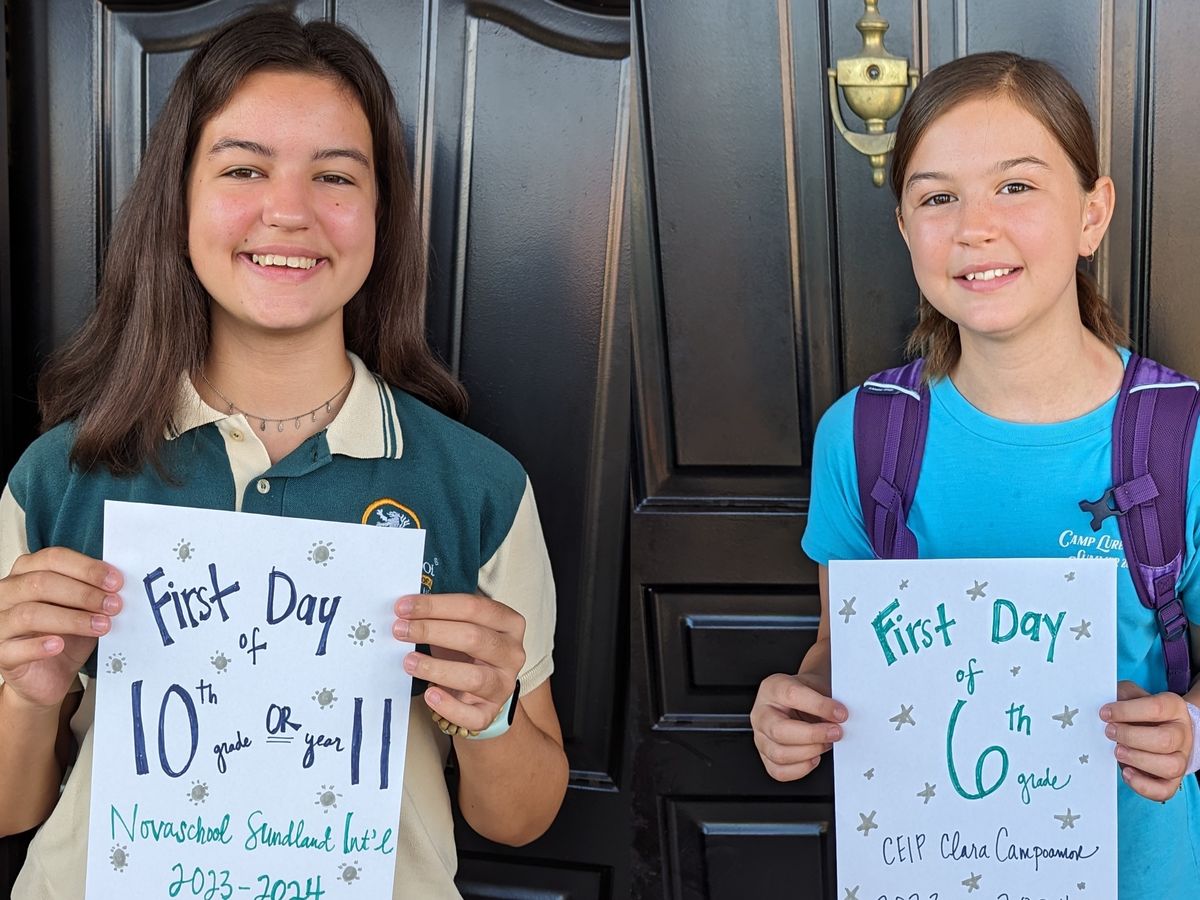 First Day
of
10th grade OR year 11
Novaschool Sundland Int'l
2023-2024
CAMP
SUMMER
First Day
of
6th grade
CEIP Clara Campoamor